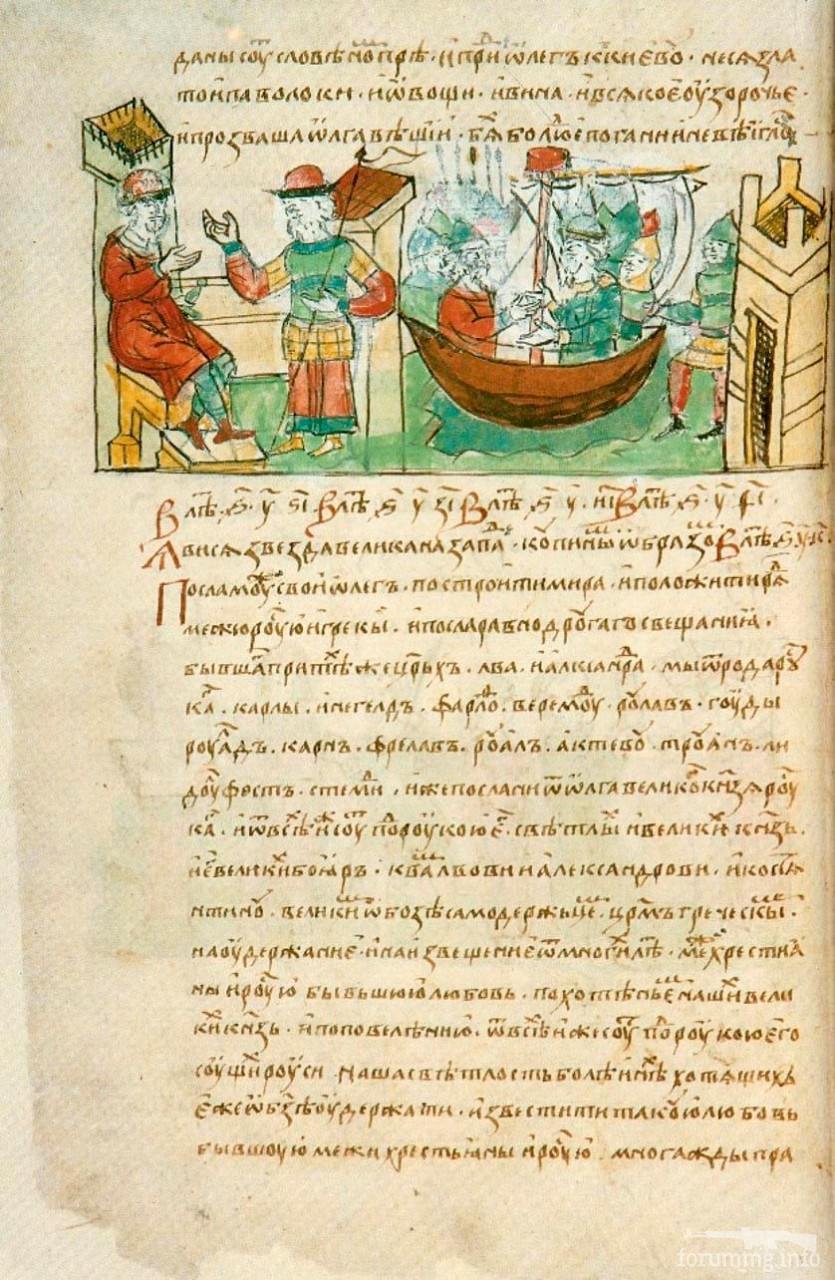 даны соуть словѣномъ прѣ · и приде ѡлегъ къ киевоу · неся зла
то и паволоки · и ѡвощи · и вина · и всякое оузорочье ·
и прозваша ѡлга вѣщии · бяху бо людие погани и невѣигло
В лѣт҃ · ѕ҃ · у҃ · ѕ҃і · В лѣт҃ · ѕ҃ · у҃ · з҃і · В лѣт҃ · ѕ҃ · у҃ · и҃і · В лѣт҃ · ѕ҃ · у҃ · ѳ҃і ·
Явися звезда велика на западе · копииным ѡбразом · В лѣт҃ · ѕ҃ · у҃ · к҃ ·
Посла моужи свои ѡлегъ · построити мира · и положити ряд
межю роусью и грекы · и посла равно дроугаго свещания ·
бывшаго при тѣхже цр҃ьхъ · лва · и алксандра · мы ѿ рода роу
ка · карлы · инегелдъ · фарлоф · веремоуд · роулавъ · гоуды
роуалдъ · карнъ · фрелавъ · роуалъ · актевоу · троуанъ · ли
доу фостъ · стемид · иже послани ѿ ѡлга великог кн҃зя роу
ка · и ѿ всѣх иже соуть под роукою ег · свѣтлых и великих кн҃зь ·
и ег великих бояръ · к вам львови и александрови · и костя
нтиноу · великим ѡ бозѣ самодержьцем · цр҃мъ греческым ·
на оудержание · и на извещение ѿ многих лѣт · меж хрестиа
ны и роусью бывьшюю любовь · похотѣньем наших вели
ких кн҃зь · и по повелѣнию · ѿ всѣх иже соуть под роукою его
соущих роуси · наша свѣтлость болѣ инѣх хотящихъ
еже ѡ бз҃ѣ оудержати · известити такоую любовь
бывшоую межи хрестьяны и роусью · многажды пра
forummg.info